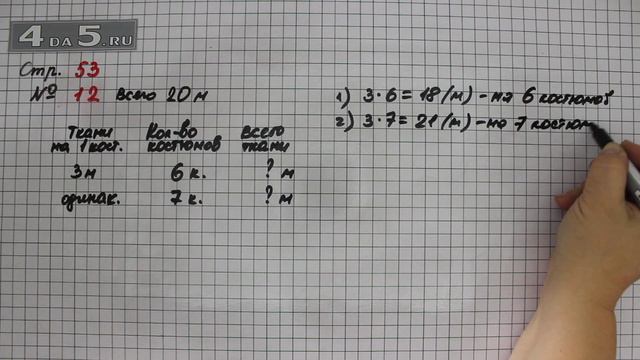 4DA5.RU
Стр. 53
№ 12 всего 20 м
Ткани на 1 кост. Кол-во костюмов всего ткани
3 м 6 к. ? м
одинак. 7 к. ? м
1) 3·6=18 (м) - на 6 костюмов
2) 3·7=21 (м) - на 7 костюм